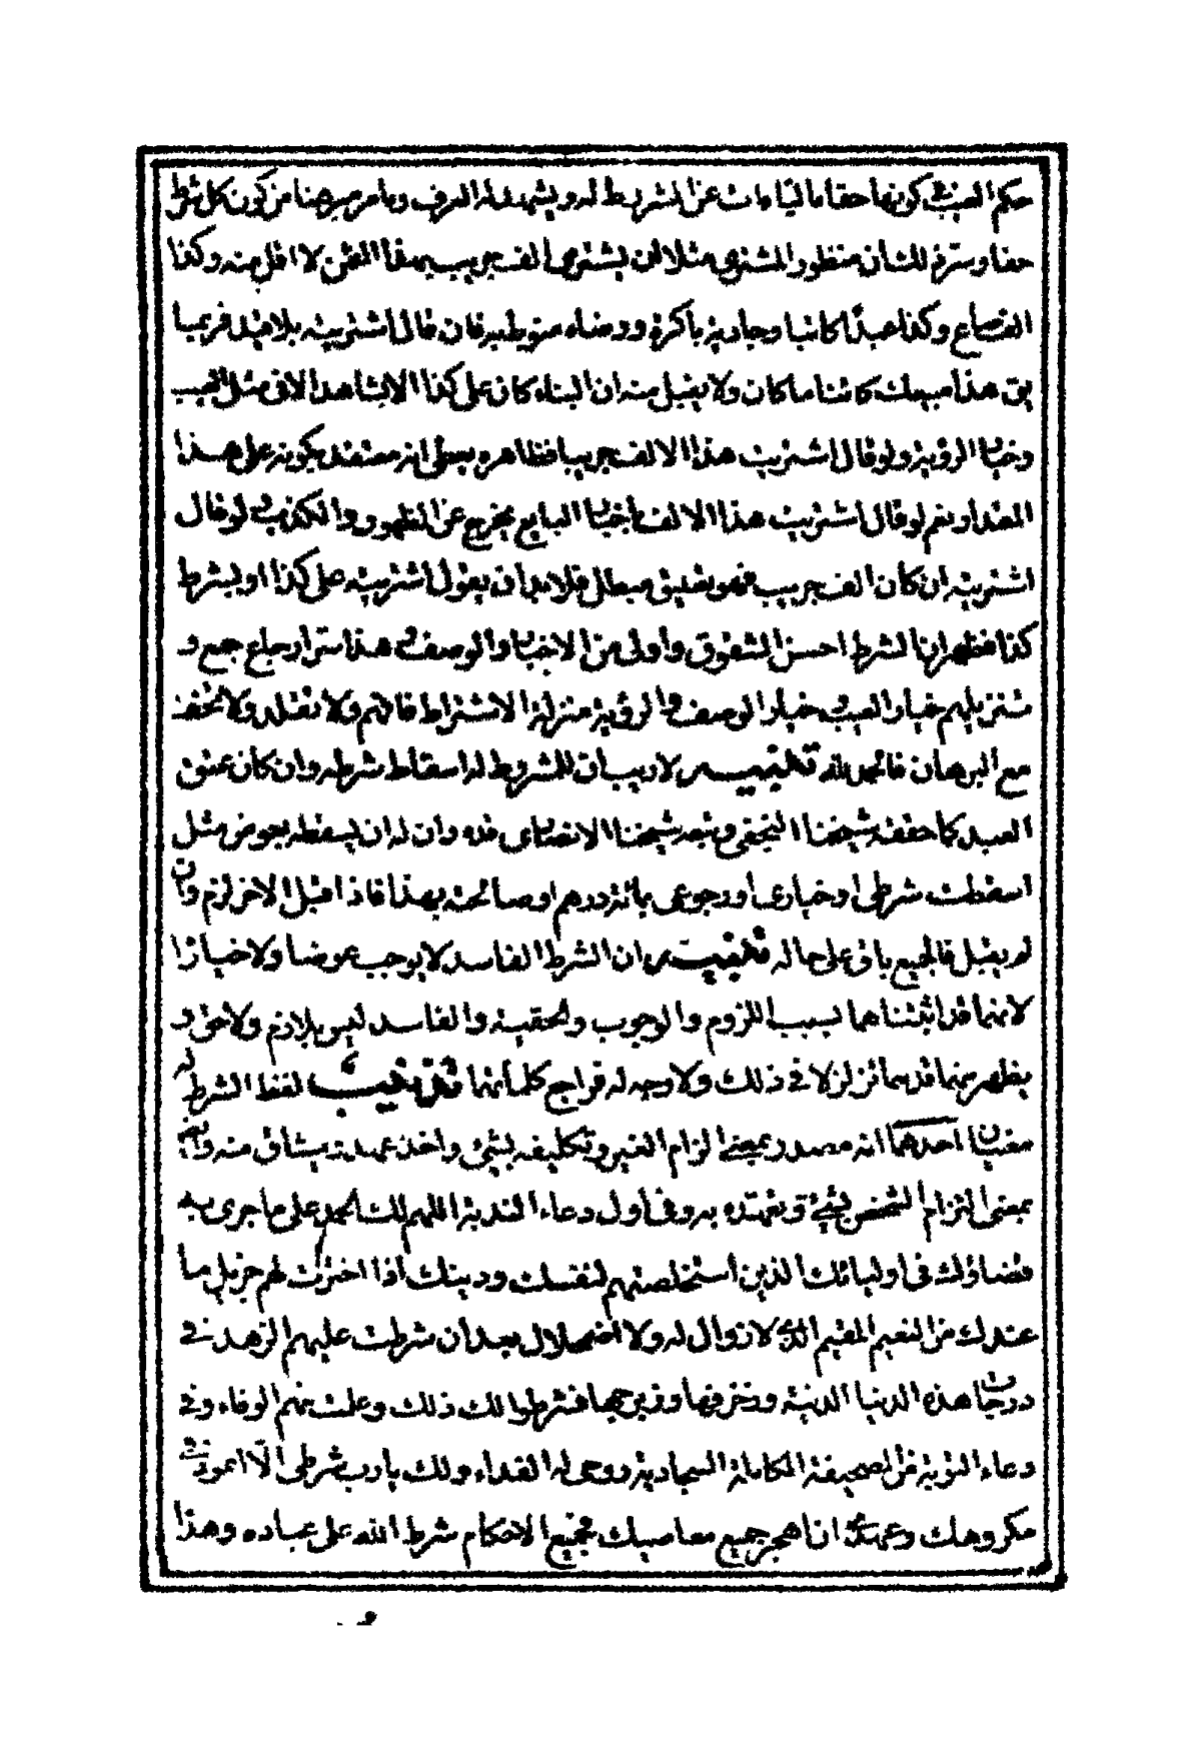 حكم العيب في كونها حقا مالتياءات عن المشروط له ويشهد له العرف وما مر من هنا من كون كل شرط
حقا وسرّه للشأن منظور المشتري مثلا لان يشترى الف جريب بهذا الثمن لا اقل منه وكذا
الصاع وكذا عبدًا كاتبا وجارية باكرة ورضاه منوط به فان قال اشتريته بلا قيد فربما
يق هذا مبيعك كائنا ما كان ولا يقبل منه ان البناء كان على كذا الا لشاهد الا في مثل العيب
وخيار الرؤية ولو قال اشتريت هذا الالف جريبا فظاهره يعطى انه معتقد بكونه على هذا
المقدار نعم لو قال اشتريت هذا الالف بأخبار البايع يخرج عن الظهور والكذب لو قال
اشتريته ان كان الف جريب فهو تعليق مبطل فلا بد ان يقول اشتريته على كذا او بشرط
كذا فظهر ان الشرط احسن الشقوق وأولى من الاخبار والوصف في هذا سرّ ارجاع جمع و
تنزيلهم خيار العيب و خيار الوصف والرؤية منزلة الاشتراط فافهم ولا تقلد ولا تخف
مع البرهان فالحمد لله تتميم لا ريب ان للمشروط له اسقاط شرطه وان كان عتق
العبد كما حققه شيخنا النجفي وتبعه شيخنا الانصارى قده وان له ان يسقطه بعوض مثل
اسقطت شرطى او خيارى او رجوعى بمائة درهم او صالحته بهذا فاذا قبل الاخر لزم وان
لم يقبل فالجميع باق على حاله تتميم ان الشرط الفاسد لا يوجب عوضا ولا خيارًا
لانهما قد اثبتناهما بسبب اللزوم والوجوب والحقية والفاسد ليس بلازم ولا حق و
يظهر منهما قدسهما تزلزلا في ذلك ولا وجه له فراجع كلماتهما تذنيب لفظ الشرط له
معنيان احدهما انه مصدر بمعنى الزام الغير وتكليفه بشئ واخذ عهدة ميثاق منه
بمعنى التزام الشخص بشئ وتعهّده به وفى أول دعاء الندبة اللهم لك الحمد على ما جرى به
قضاؤك فى اوليائك الذين استخلصتهم لنفسك ودينك اذا اخترت لهم جزيل ما
عندك من النعيم المقيم الذي لا زوال له ولا اضمحلال بعد ان شرطت عليهم الزهد في
درجات هذه الدنيا الدنية وزخرفها وزبرجها فشرطوا لك ذلك وعلمت منهم الوفاء وفي
دعاء التوبة من الصحيفة الكاملة السجادية روحى له الفداء ولك يا رب شرطى الّا اعود في
مكروهك وعهدى ان اهجر جميع معاصيك فجميع الاحكام شرط الله على عباده وهذا